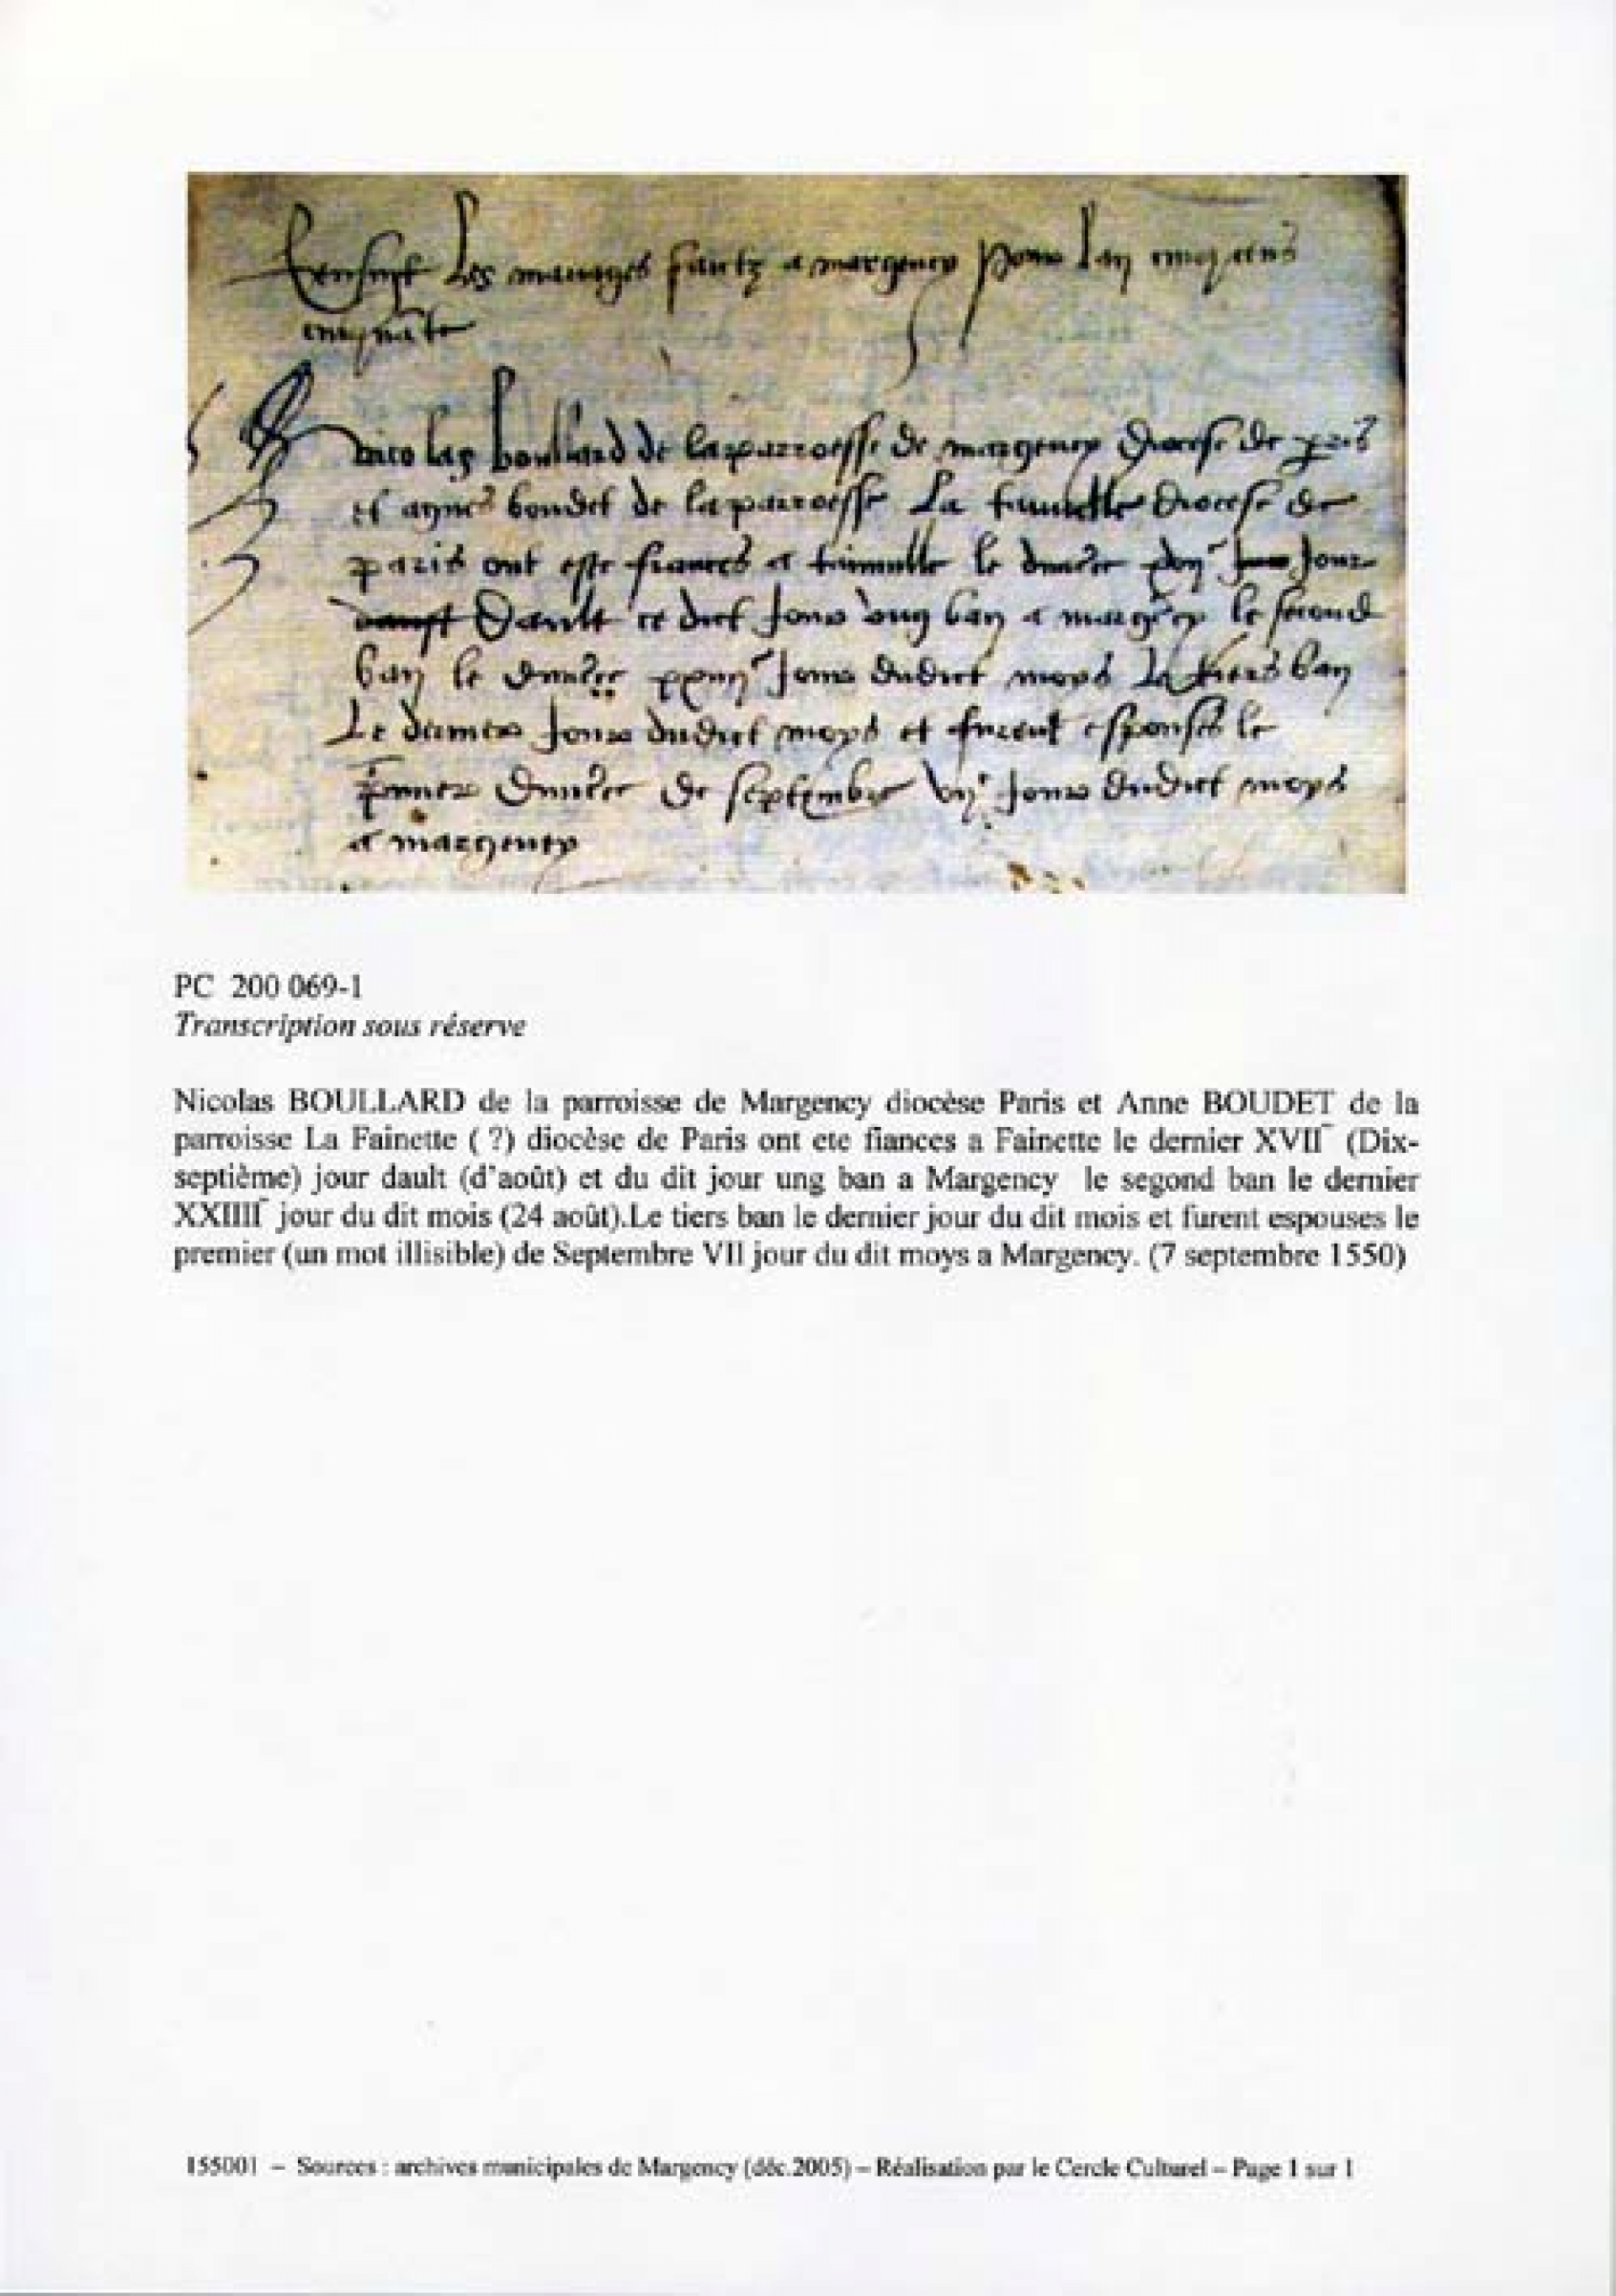 Sensuyt les mariages faictz a margency pour lan cinq cens
cinquāte
Nicolas boullard de la parroesse de margency diocese de paris
et agnes boudet de la parroesse diocese de
paris ont este fiances a le jour
Daoult ce dict jour ung ban a margēcy le second
ban le xxiiij jour dudict moys Le tiers ban
Le dernier jour dudict moys et furent espouses le
premier de septembre vij jour dudict moys
a margency
PC 200 069-1
Transcription sous réserve
Nicolas BOULLARD de la parroisse de Margency diocèse Paris et Anne BOUDET de la
parroisse La Fainette ( ?) diocèse de Paris ont ete fiances a Fainette le dernier XVII‾ (Dix-
septième) jour dault (d'août) et du dit jour ung ban a Margency le segond ban le dernier
XXIIII‾ jour du dit mois (24 août).Le tiers ban le dernier jour du dit mois et furent espouses le
premier (un mot illisible) de Septembre VII jour du dit moys a Margency. (7 septembre 1550)
155001 – Sources : archives municipales de Margency (déc.2005) – Réalisation par le Cercle Culturel – Page 1 sur 1